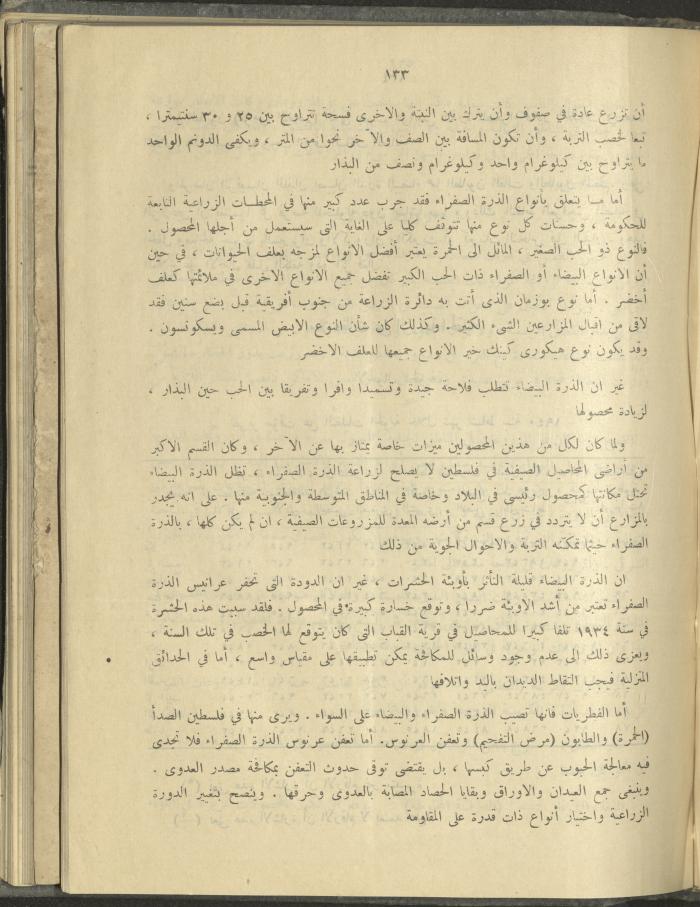 ١٣٣
أن تزرع عادة في صفوف وأن يترك بين النبتة والاخرى فسحة تتراوح بين ٢٥ و ٣٠ سنتيمترا ،
تبعا لخصب التربة ، وأن تكون المسافة بين الصف والآخر نحوا من المتر ، ويكفى الدونم الواحد
ما يتراوح بين كيلوغرام واحد وكيلوغرام ونصف من البذار
أما مــا يتعلق بأنواع الذرة الصفراء فقد جرب عدد كبير منها في المحطــات الزراعية التابعة
للحكومة ، وحسنات كل نوع منها تتوقف كليا على الغاية التى سيستعمل من أجلها المحصول .
فالنوع ذو الحب الصغير ، المائل الى الحمرة يعتبر أفضل الانواع لمزجه بعلف الحيوانات ، في حين
أن الانواع البيضاء أو الصفراء ذات الحب الكبير تفضل جميع الانواع الاخرى في ملائمتها كعلف
أخضر . أما نوع بوزمان الذى أتت به دائرة الزراعة من جنوب أفريقية قبل بضع سنين فقد
لاقى من اقبال المزارعين الشىء الكثير . وكذلك كان شأن النوع الابيض المسمى ويسكونسون .
وقد يكون نوع هيكورى كينك خير الانواع جميعها للعلف الاخضر
غير ان الذرة البيضاء تتطلب فلاحة جيدة وتسميدا وافرا وتفريقا بين الحب حين البذار ،
لزيادة محصولها
ولما كان لكل من هذين المحصولين ميزات خاصة يمتاز بها عن الآخر ، وكان القسم الاكبر
من أراضى المحاصيل الصيفية في فلسطين لا يصلح لزراعة الذرة الصفراء ، تظل الذرة البيضاء
تحتل مكانتها كمحصول رئيسى في البلاد وخاصة في المناطق المتوسطة والجنوبية منها . على انه يجدر
بالمزارع أن لا يتردد في زرع قسم من أرضه المعدة للمزروعات الصيفية ، ان لم يكن كلها ، بالذرة
الصفراء حيثما تمكنه التربة والاحوال الجوية من ذلك
ان الذرة البيضاء قليلة التأثر بأوبئة الحشرات ، غير ان الدودة التى تحفر عرانيس الذرة
الصفراء تعتبر من أشد الاوبئة ضررا ، وتوقع خسارة كبيرة في المحصول . فلقد سببت هذه الحشرة
في سنة ١٩٣٤ تلفا كبيرا للمحاصيل في قرية القباب التى كان يتوقع لها الخصب في تلك السنة ،
ويعزى ذلك الى عدم وجود وسائل للمكافحة يمكن تطبيقها على مقياس واسع ، أما في الحدائق
المنزلية فيجب التقاط الديدان باليد واتلافها
أما الفطريات فانها تصيب الذرة الصفراء والبيضاء على السواء . ويرى منها في فلسطين الصدأ
(الحمرة) والطابون (مرض التفحيم) وتعفن العرنوس. أما تعفن عرنوس الذرة الصفراء فلا تجدى
فيه معالجة الحبوب عن طريق كبسها ، بل يقتضى توقى حدوث التعفن بمكافحة مصدر العدوى .
وينبغى جمع العيدان والاوراق وبقايا الحصاد المصابة بالعدوى وحرقها . وينصح بتغيير الدورة
الزراعية واختيار أنواع ذات قدرة على المقاومة